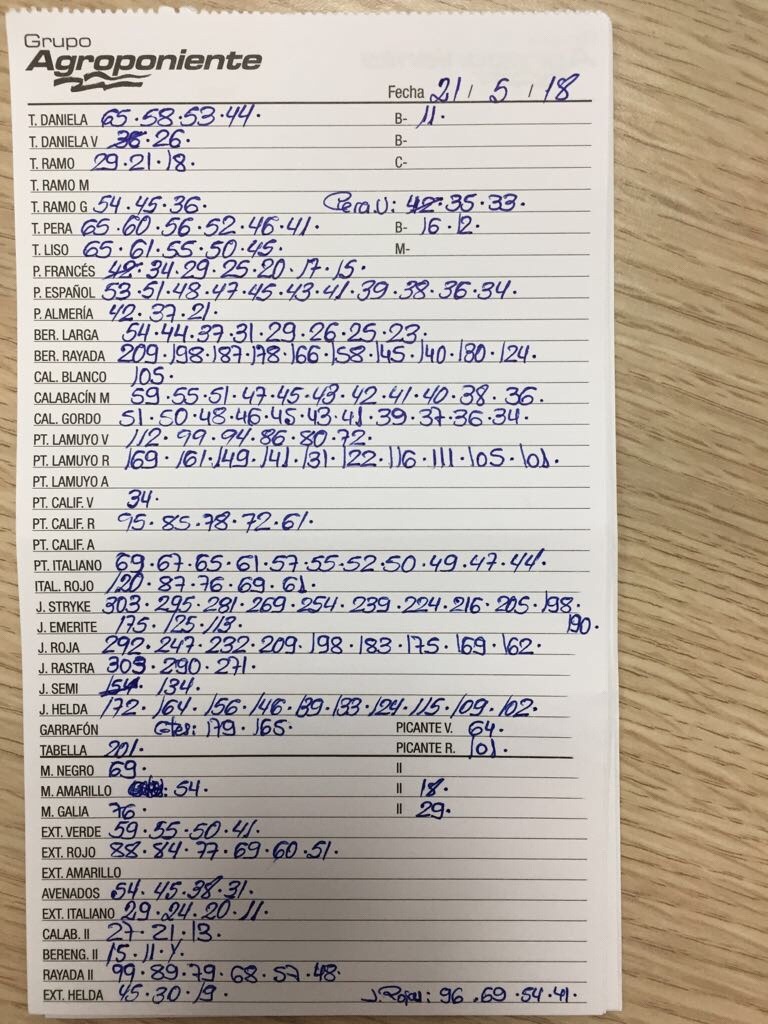 Grupo
Agroponiente
Fecha 21 / 5 / 18
T. DANELA 65·58·53·44· B- 11·
T. DANIELA V 36·26· B-
T. RAMO 29·21·18· C-
T. RAMO M
T. RAMO G 54·45·36· Pera V: 42·35·33·
T. PERA 65·60·56·52·46·41· B- 16·12·
T. LISO 65·61·55·50·45· M-
P. FRANCÉS 42·34·29·25·20·17·15·
P. ESPAÑOL 53·51·48·47·45·43·41·39·38·36·34·
P. ALMERÍA 42·37·21·
BER. LARGA 54·44·37·31·29·26·25·23·
BER. RAYADA 209·198·187·178·166·158·145·140·130·124·
CAL. BLANCO 105·
CALABACÍN M 59·55·51·47·45·43·42·41·40·38·36·
CAL. GORDO 51·50·48·46·45·43·41·39·37·36·34·
PT. LAMUYO V 112·99·94·86·80·72·
PT. LAMUYO R 169·161·149·141·131·122·116·111·105·101·
PT. LAMUYO A
PT. CALIF. V 34·
PT. CALIF. R 95·85·78·72·61·
PT. CALIF. A
PT. ITALIANO 69·67·65·61·57·55·52·50·49·47·44·
ITAL. ROJO 120·87·76·69·61·
J. STRYKE 303·295·281·269·254·239·224·216·205·198·
J. EMERITE 175·125·113· 190·
J. ROJA 292·247·232·209·198·183·175·169·162·
J. RASTRA 303·290·271·
J. SEMI 154·134·
J. HELDA 172·164·156·146·139·133·124·115·109·102·
GARRAFÓN 179·165· PICANTE V. 64·
TABELLA 201· PICANTE R. 101·
M. NEGRO 69· II
M. AMARILLO 54· II 18·
M. GALIA 76· II 29·
EXT. VERDE 59·55·50·41·
EXT. ROJO 88·84·77·69·60·51·
EXT. AMARILLO
AVENADOS 54·45·38·31·
EXT. ITALIANO 29·24·20·11·
CALAB. II 27·21·13·
BERENG. II 15·11·
RAYADA II 99·89·79·68·57·48·
EXT. HELDA 45·30·19· J. Rojas: 96·69·54·41·